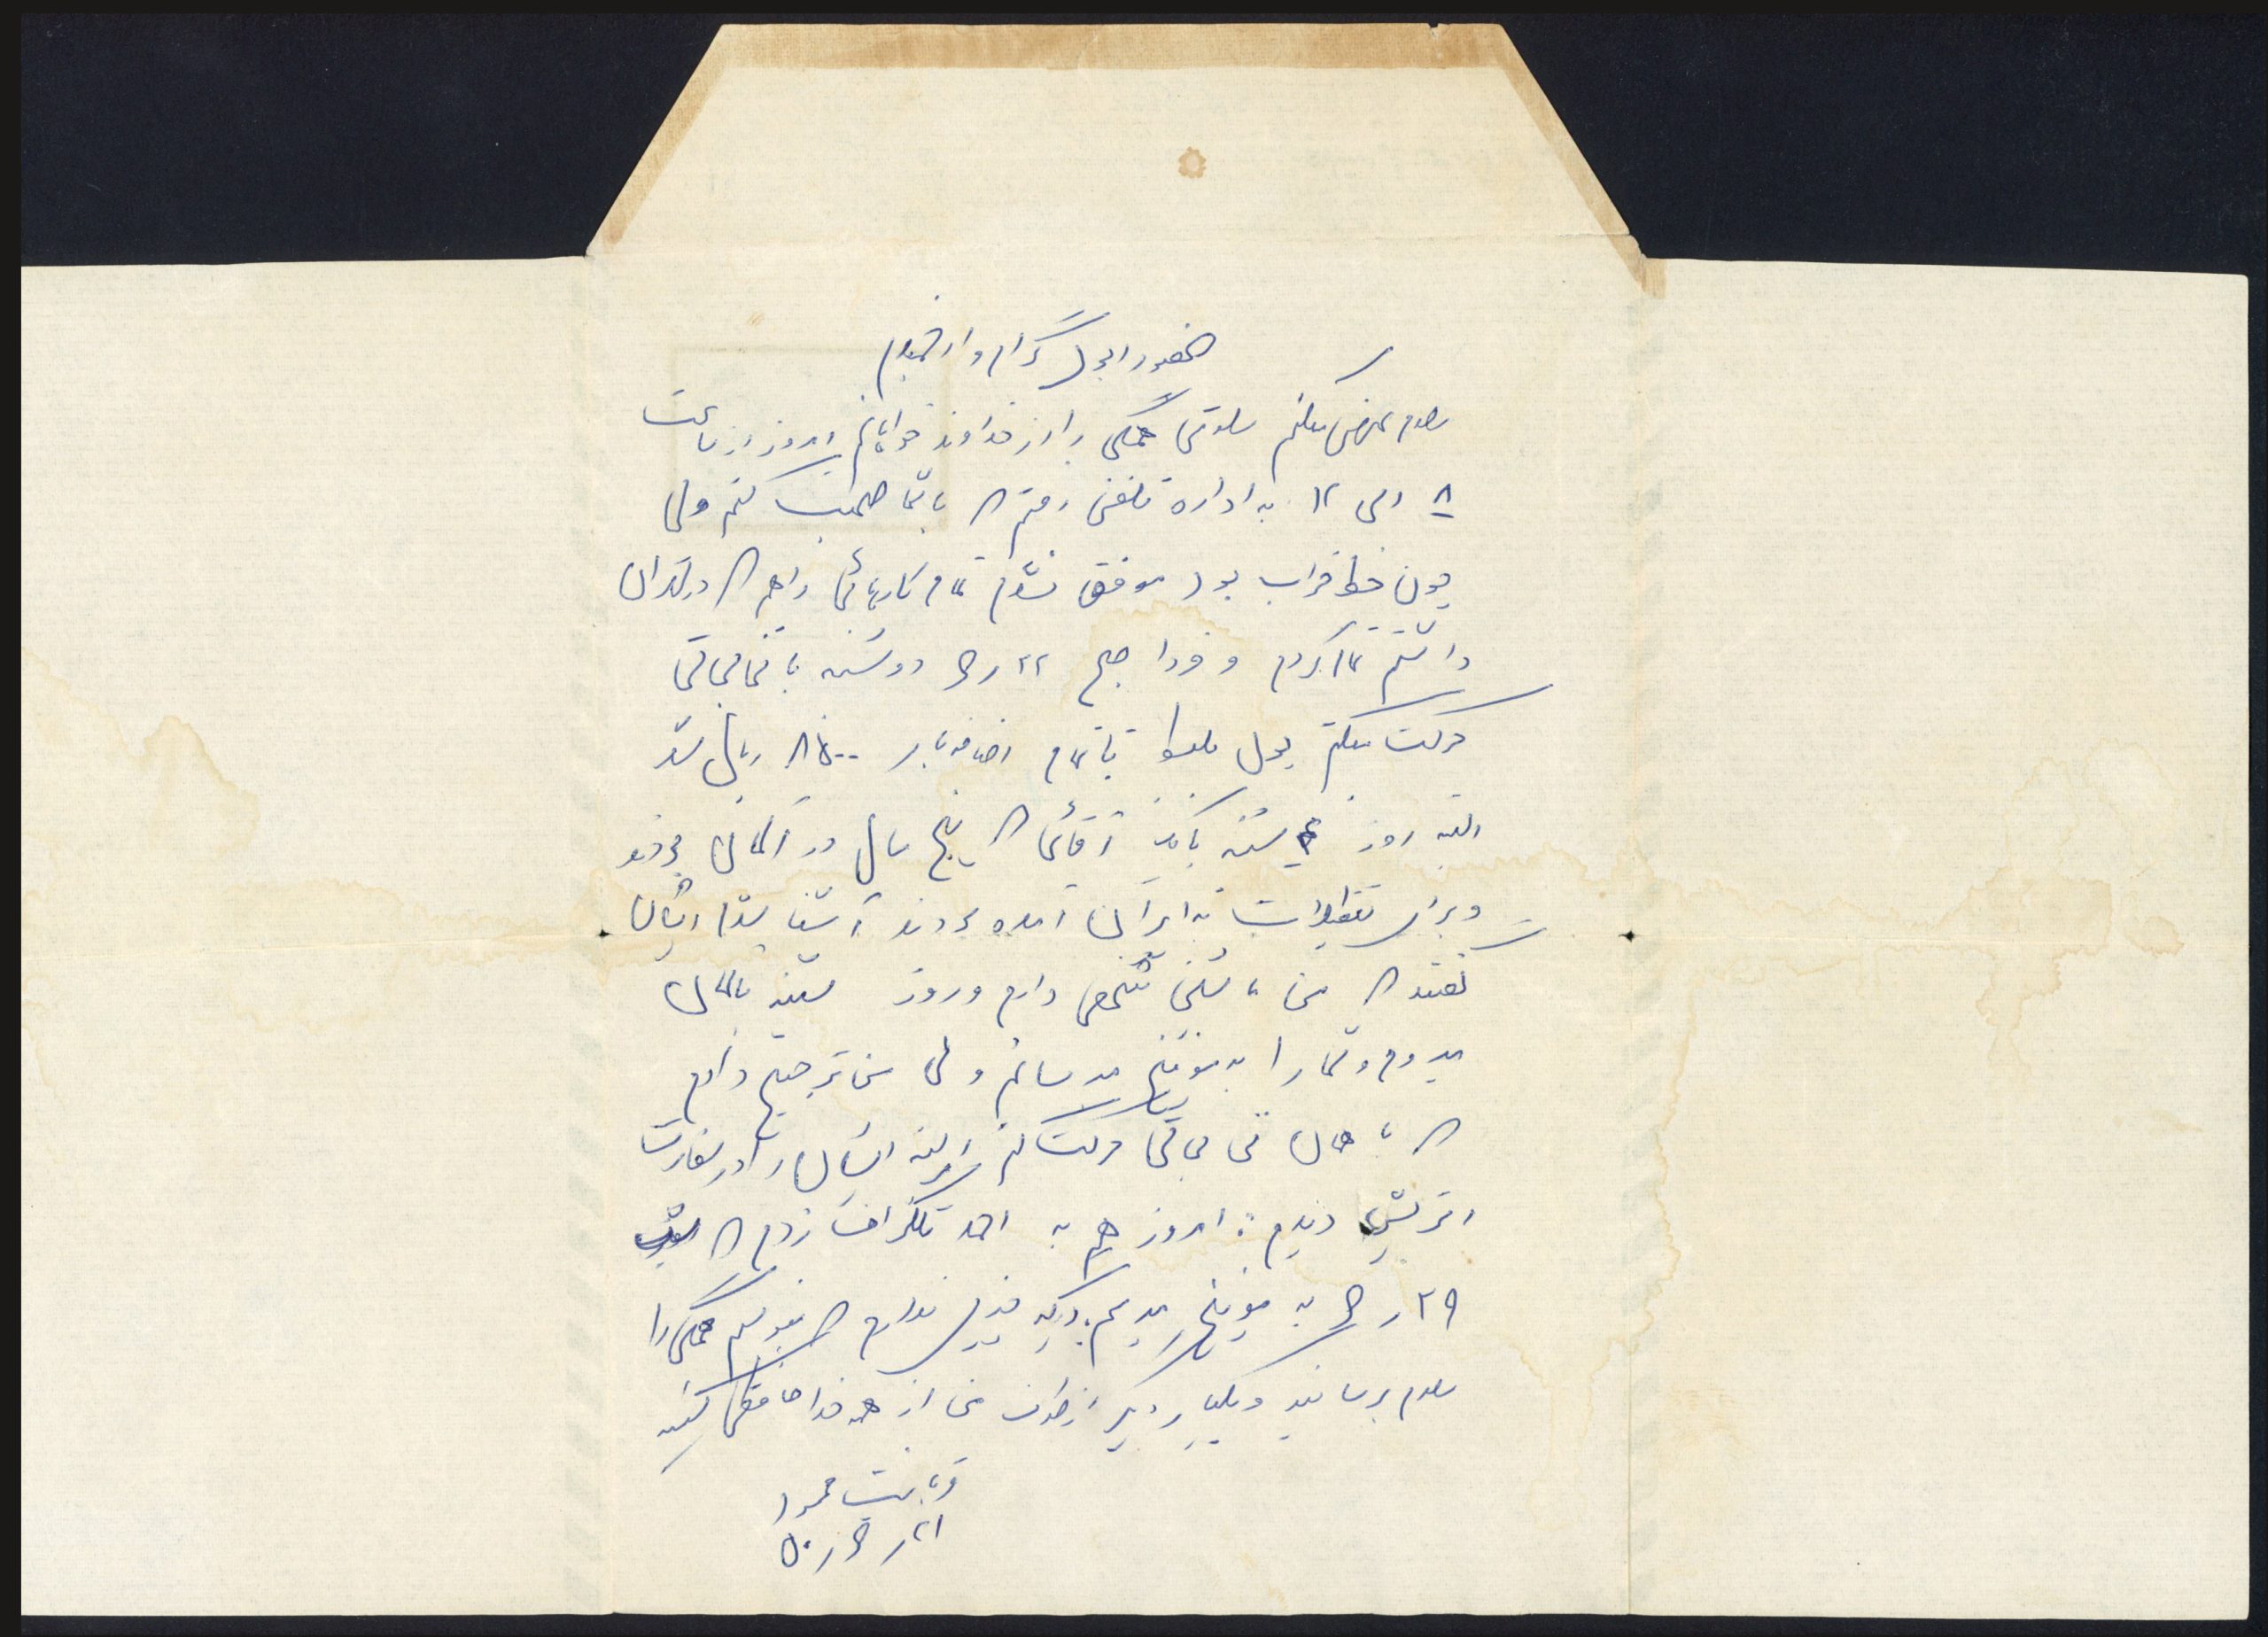 حضور ابوی گرام و ارجمندم
سلام عرض میکنم سلامتی همگی را از خداوند خواهانم امروز از ساعت
۸ الی ۱۲ به اداره تلفن رفتم که با شما صحبت کنم ولی
چون خط خراب بود موفق نشدم تمام کارهائی را هم که در تهران
داشتم تمام کردم و فردا صبح ۲۲ر۵ دوشنبه با تی بی تی
حرکت میکنم پول بلیط با تمام اضافه بار ۸۵۰۰ ریال شد
البته روز شنبه با یک آقائی که پنج سال در آلمان بودند
و برای تعطیلات به ایران آمده بودند آشنا شدم ایشان
گفتند که من ماشین شخصی دارم و روز شنبه بآلمان
میروم و شما را به مونیخ میرسانم ولی من ترجیح دادم
که با همان تی بی تی حرکت کنم البته ایشان را در سفارت
اتریش دیدم. امروز هم به احمد تلگراف زدم که
۲۹ر۵ به مونیخ میرسم. دیگر عرضی ندارم که بنویسم همگی را
سلام برسانید و یکبار دیگر از طرف من از همه خداحافظی کنید
قربانت محمود
۲۱ر۵ر۵۰